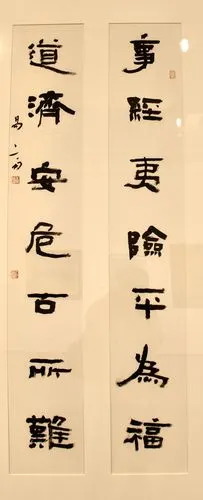 事經夷險平為福
道濟安危古所難